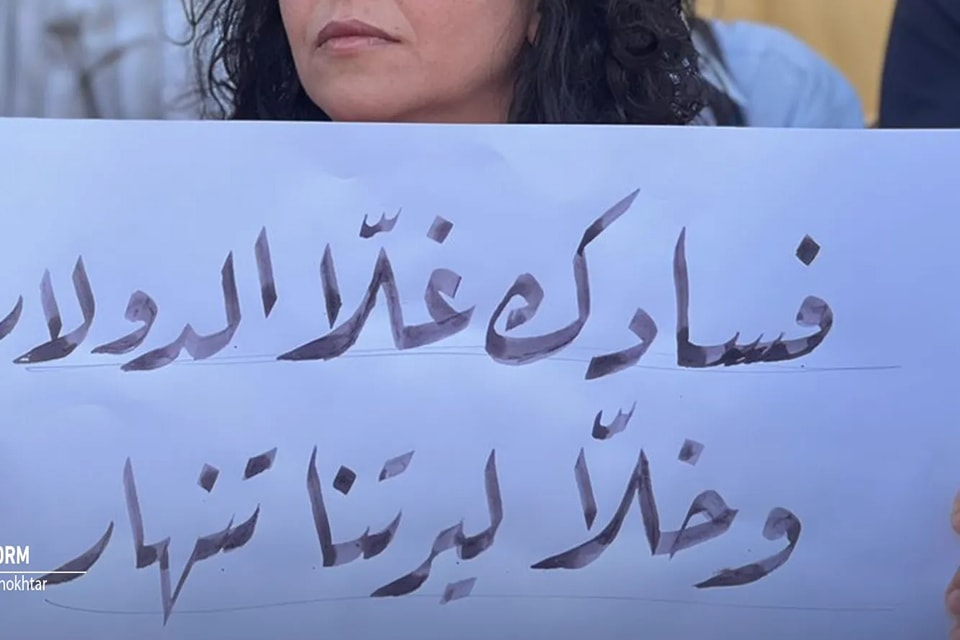 فسادك غلّا الدولار
وخلّا ليرتنا تنهار
ORM
mokhtar